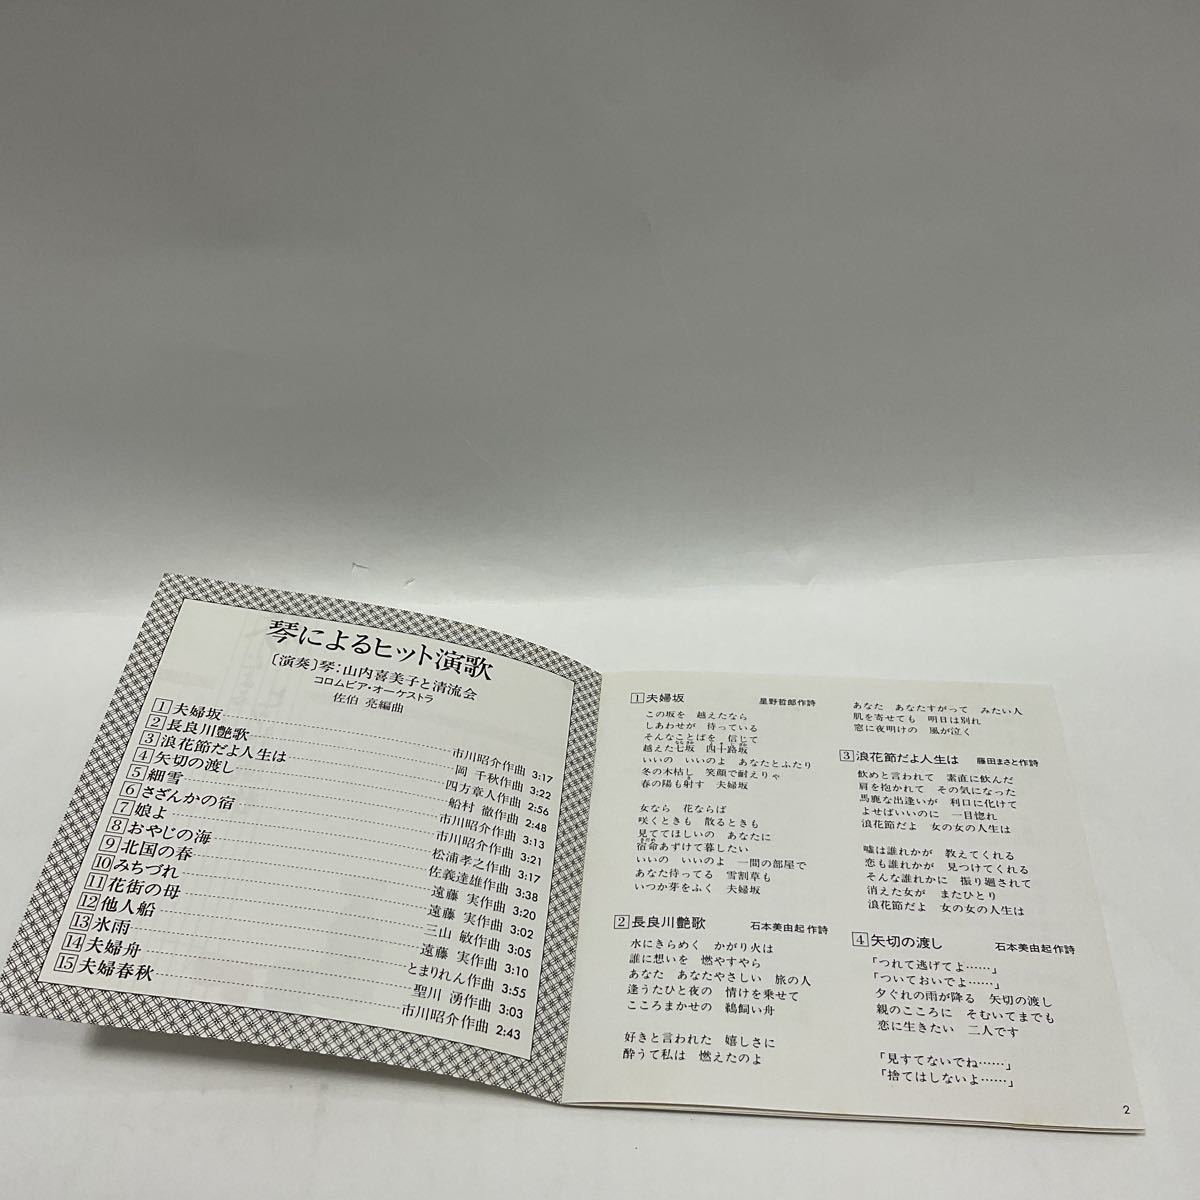 琴によるヒット演歌
〔演奏〕琴:山内喜美子と清流会
コロムビア・オーケストラ
佐伯 亮編曲
1 夫婦坂 市川昭介作曲 3:17
2 長良川艶歌 岡 千秋作曲 3:22
3 浪花節だよ人生は 四方章人作曲 2:56
4 矢切の渡し 船村 徹作曲 2:48
5 細雪 市川昭介作曲 3:13
6 さざんかの宿 市川昭介作曲 3:21
7 娘よ 松浦孝之作曲 3:17
8 おやじの海 佐義達雄作曲 3:38
9 北国の春 遠藤 実作曲 3:20
10 みちづれ 遠藤 実作曲 3:02
11 花街の母 三山 敏作曲 3:05
12 他人船 遠藤 実作曲 3:10
13 氷雨 とまりれん作曲 3:55
14 夫婦舟 聖川 湧作曲 3:03
15 夫婦春秋 市川昭介作曲 2:43
1 夫婦坂 星野哲郎作詩
この坂を 越えたなら
しあわせが 待っている
そんなことばを 信じて
越えた七坂 四十路坂
いいの いいのよ あなたとふたり
冬の木枯し 笑顔で耐えりゃ
春の陽も射す 夫婦坂
女なら 花ならば
咲くときも 散るときも
見ててほしいの あなたに
宿命あずけて暮したい
いいの いいのよ 一間の部屋で
あなた待ってる 雪割草も
いつか芽をふく 夫婦坂
2 長良川艶歌 石本美由起作詩
水にきらめく かがり火は
誰に想いを 燃やすやら
あなた あなたやさしい 旅の人
逢うたひと夜の 情けを乗せて
こころまかせの 鵜飼い舟
好きと言われた 嬉しさに
酔うて私は 燃えたのよ
あなた あなたすがって みたい人
肌を寄せても 明日は別れ
窓に夜明けの 風が泣く
3 浪花節だよ人生は 藤田まさと作詩
飲めと言われて 素直に飲んだ
肩を抱かれて その気になった
馬鹿な出逢いが 利口に化けて
よせばいいのに 一目惚れ
浪花節だよ 女の女の人生は
嘘は誰れかが 教えてくれる
恋も誰れかが 見つけてくれる
そんな誰れかに 振り廻されて
消えた女が またひとり
浪花節だよ 女の女の人生は
4 矢切の渡し 石本美由起作詩
「つれて逃げてよ……」
「ついておいでよ……」
夕ぐれの雨が降る 矢切の渡し
親のこころに そむいてまでも
恋に生きたい 二人です
「見すてないでね……」
「捨てはしないよ……」
2